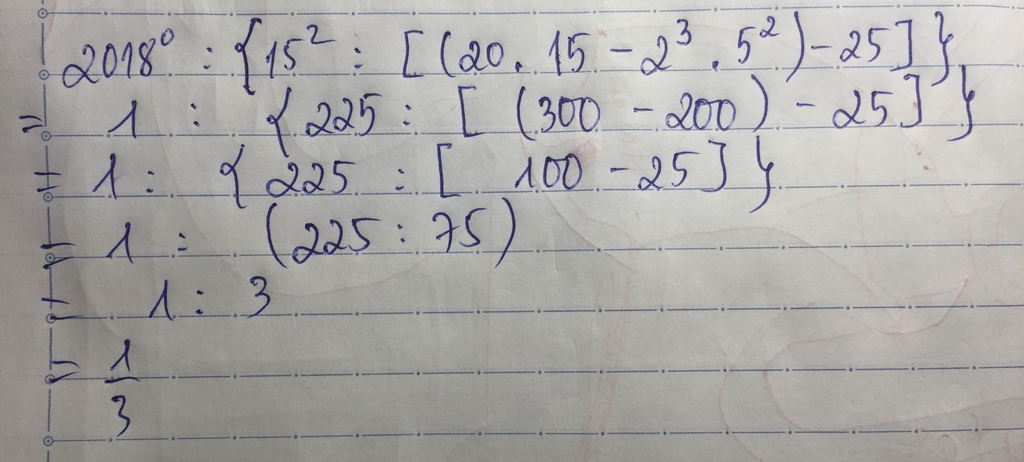 2018⁰ : {15² : [(20 . 15 - 2³ . 5²) - 25]}
= 1 : {225 : [(300 - 200) - 25]}
= 1 : {225 : [100 - 25]}
= 1 : (225 : 75)
= 1 : 3
= 1/3